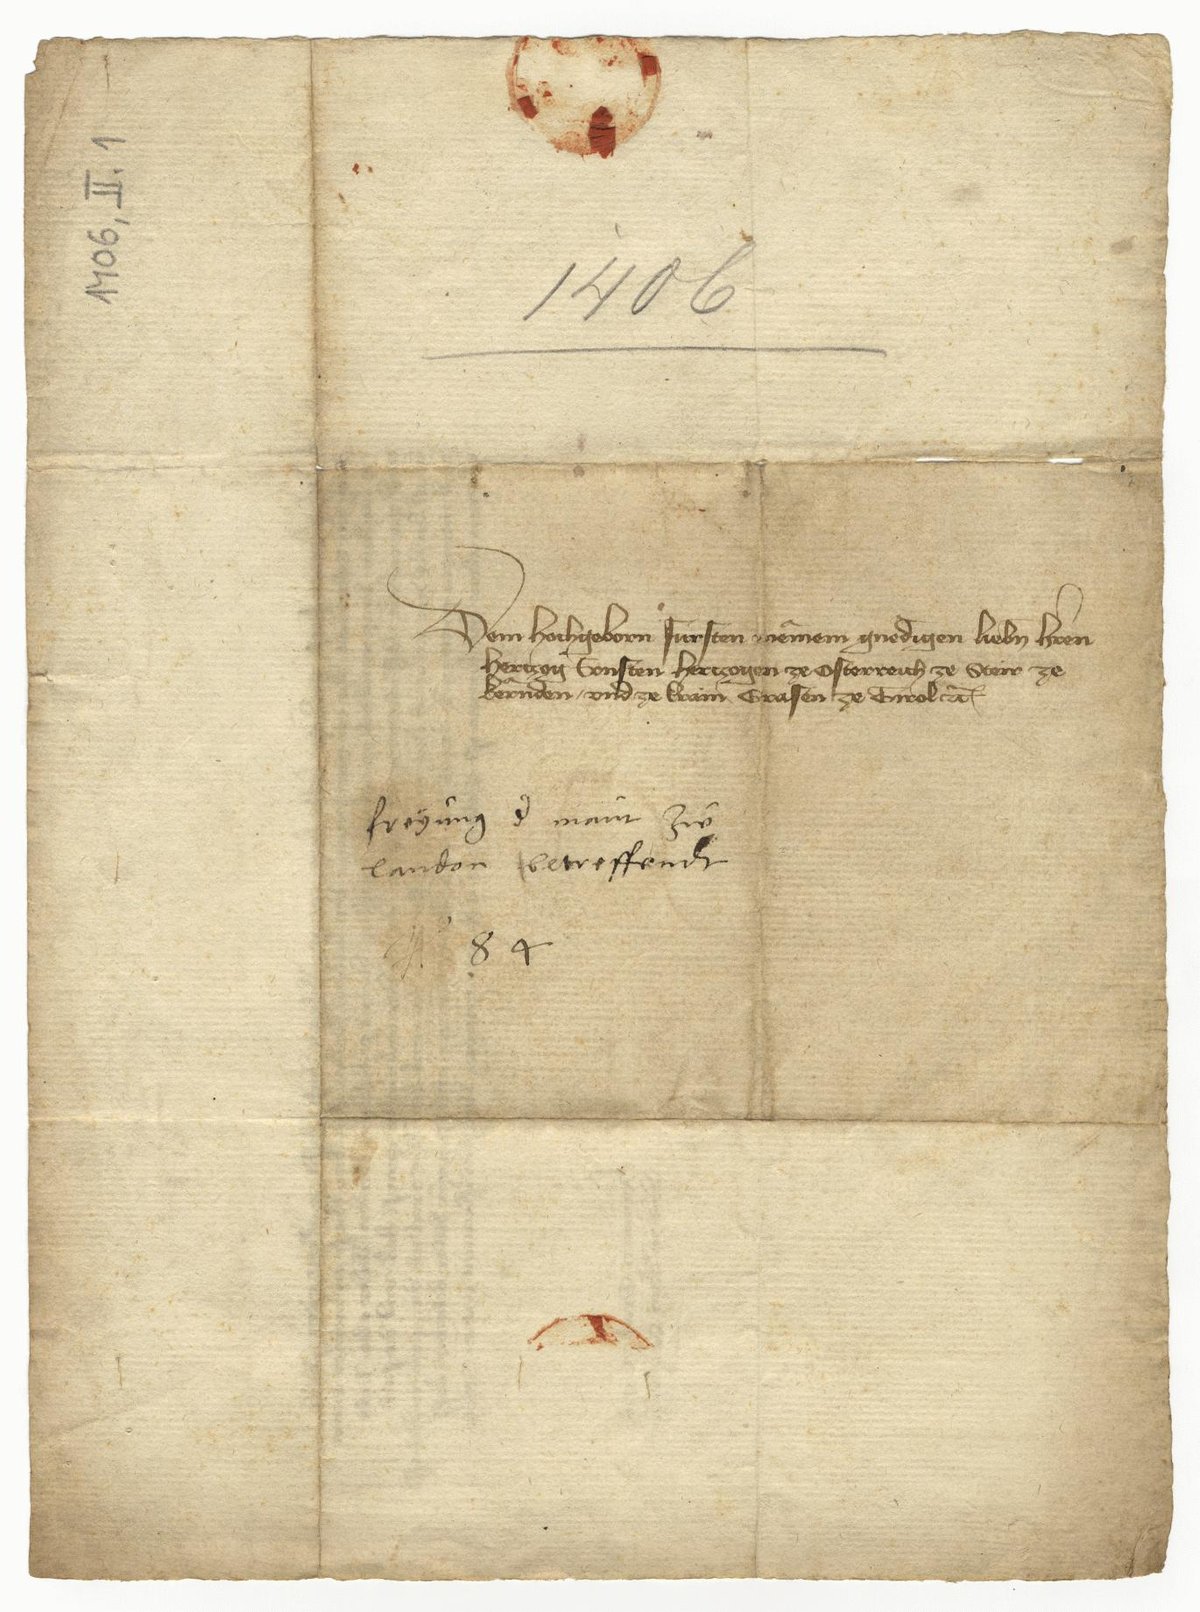 1406, II. 1
1406
Dem hochgeborn fürsten meinem gnedigen liebn hern
hertzog Ernsten hertzogen ze Osterreich ze Steir ze
kernden / vnd ze krain Grafen ze Tirol etc
freyung d maut zu
landon betreffendt
84